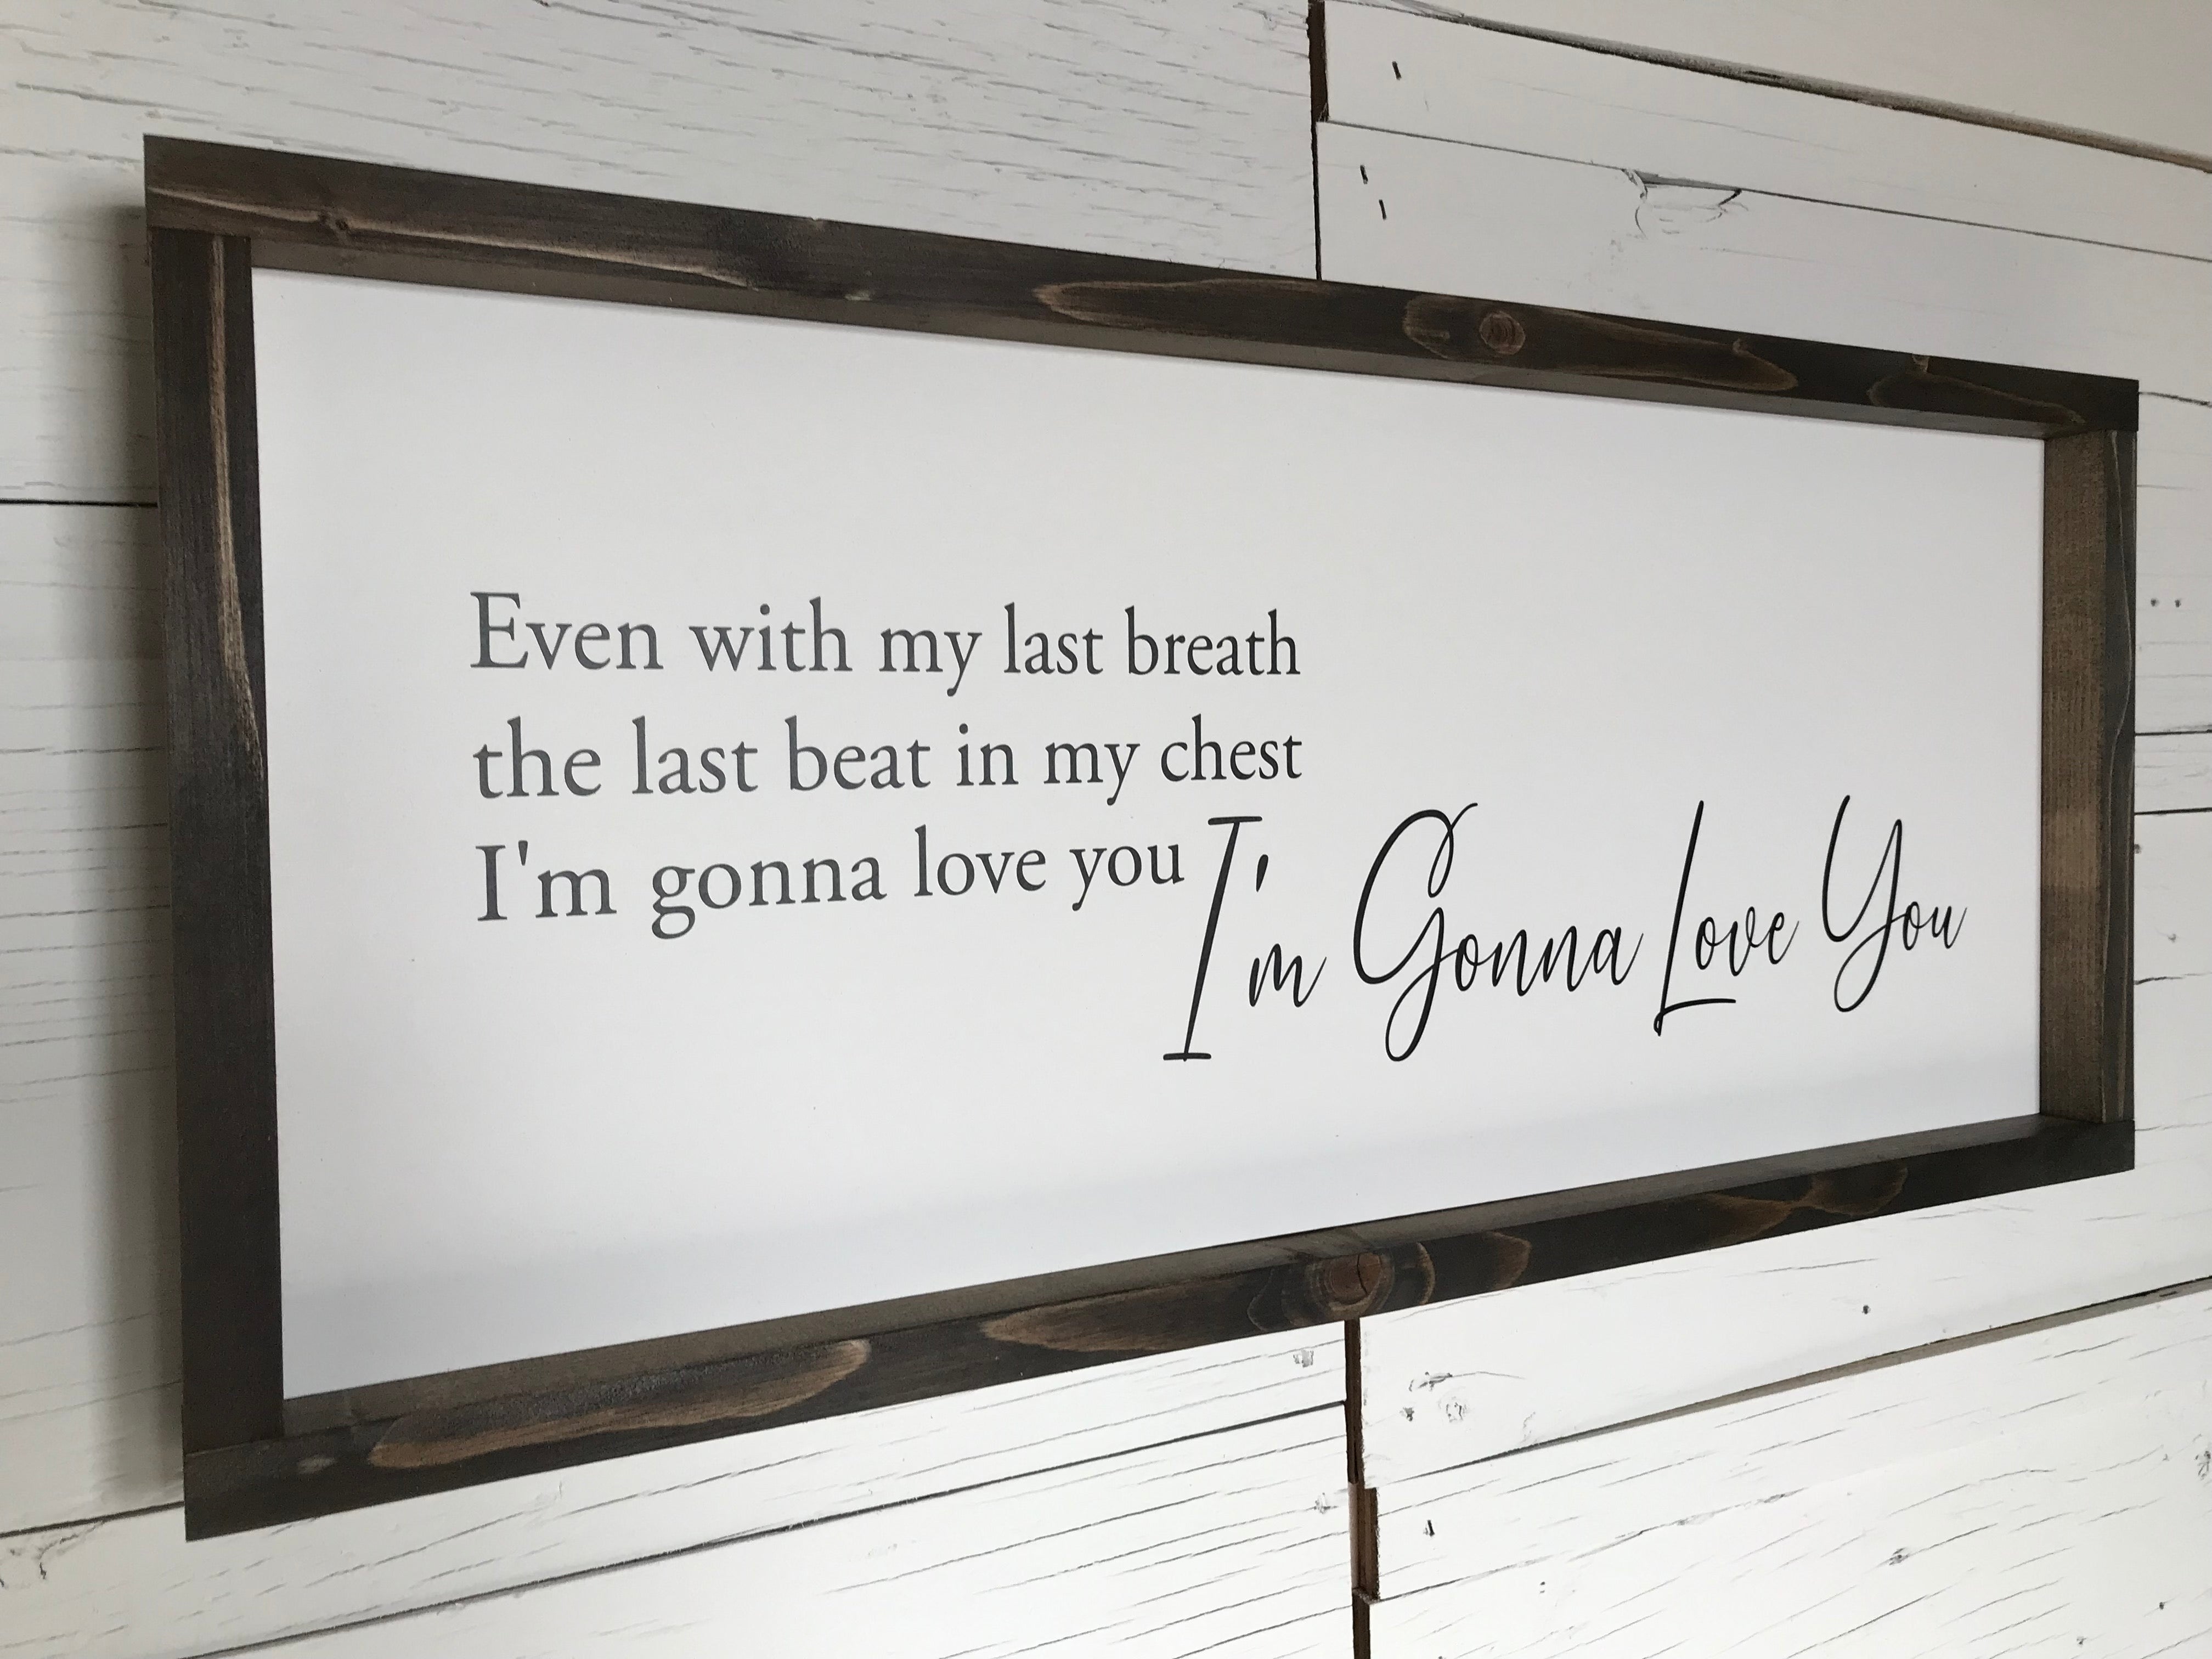 Even with my last breath
the last beat in my chest
I'm gonna love you
I'm Gonna Love You